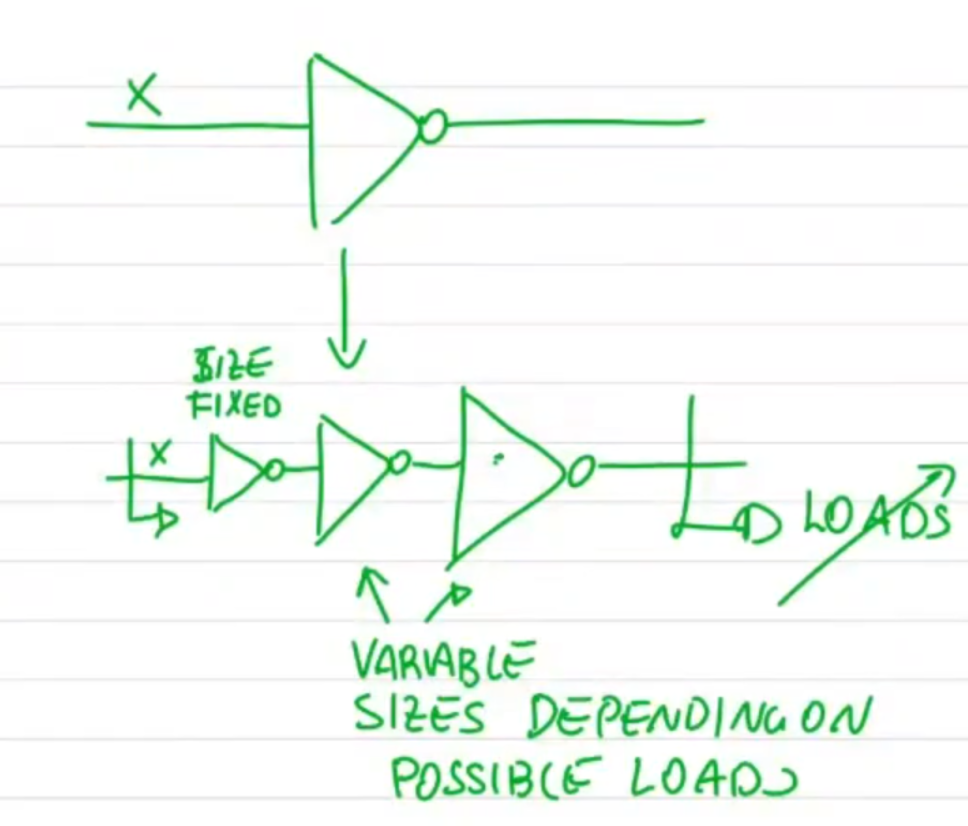 X
SIZE
FIXED
X
LOADS
VARIABLE
SIZES DEPENDING ON
POSSIBLE LOADS